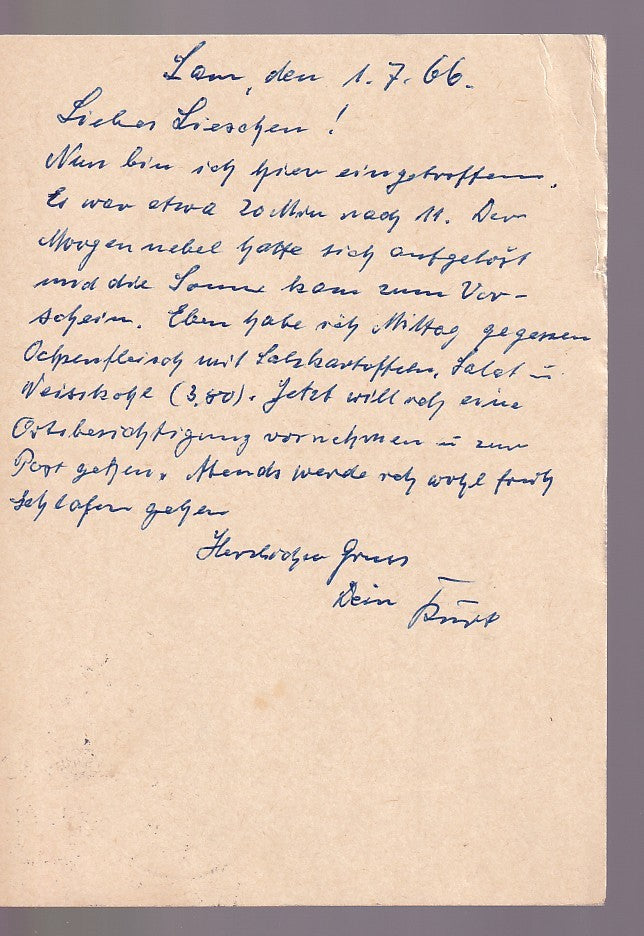 Lam, den 1.7.66.
Liebes Lieschen!
Nun bin ich hier eingetroffen.
Es war etwa 20 Min nach 11. Der
Morgennebel hatte sich aufgelöst
und die Sonne kam zum Vor-
schein. Eben habe ich Mittag gegessen
Ochsenfleisch mit Salzkartoffeln, Salat u
Weisskohl (3,80). Jetzt will ich eine
Ortsbesichtigung vornehmen u zur
Post gehen. Abends werde ich wohl früh
schlafen gehen
Herzlichen Gruss
Dein Kurt